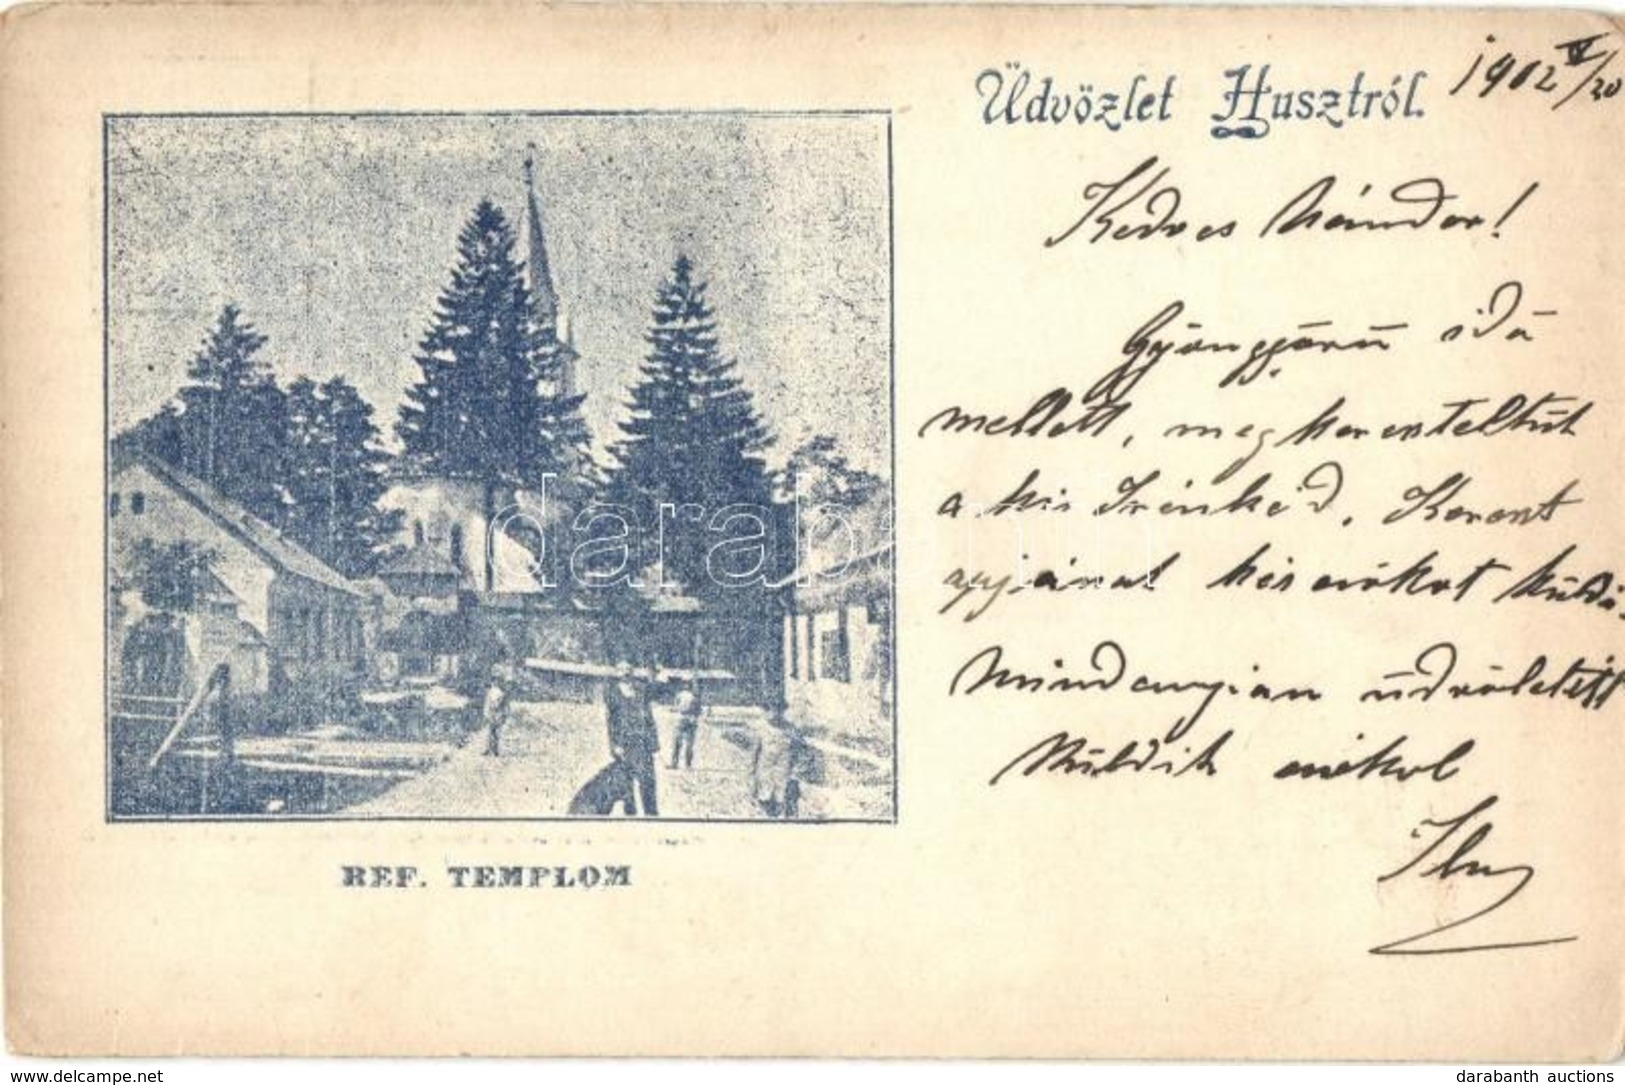 Üdvözlet Husztról.
1902 IV/20
Kedves Nándor!
Gyöngyörü idö
mellett, megkereszteltük
a kis Irénkéd. Kereszt
apjának kis csókot küld.
Mindanyian üdvözletett
küldik csókol
REF. TEMPLOM
darabanth
www.delcampe.net
darabanth auctions